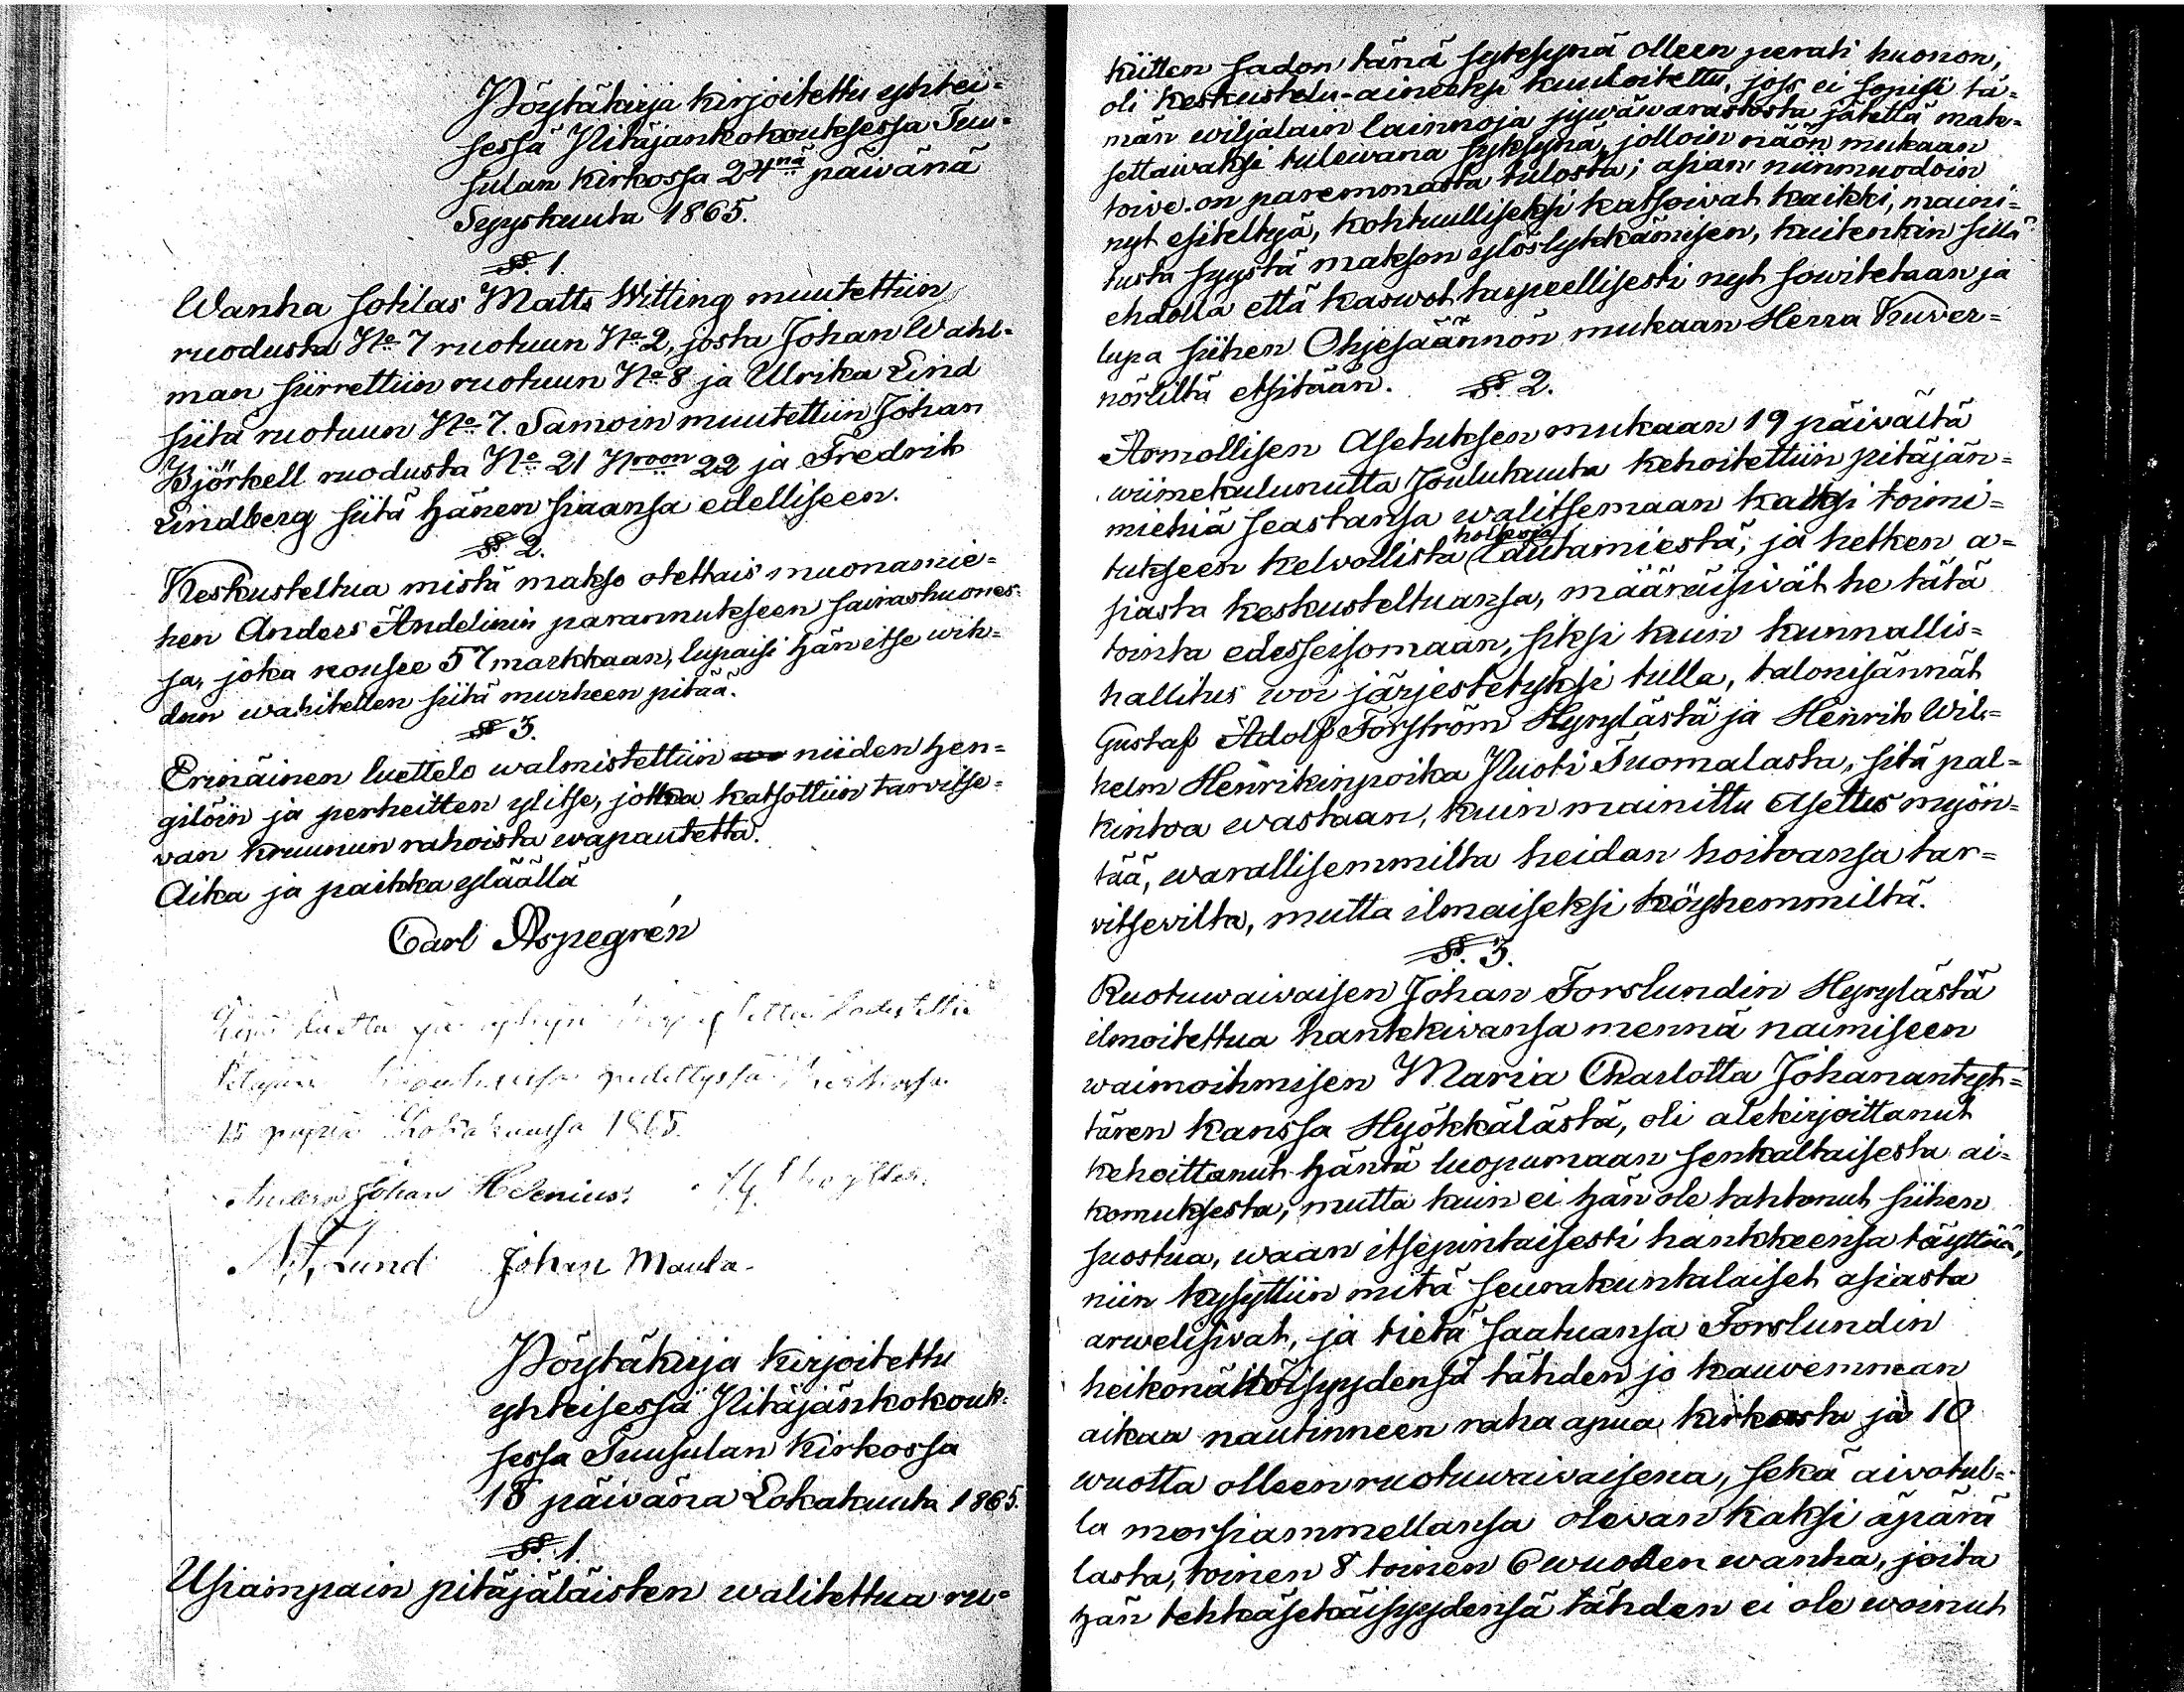 Pöytäkirja kirjoitettu yhtei=
sessä Pitäjänkokouksessa Tuu=
sulan kirkossa 24nä päivänä
Syyskuuta 1865.
§ 1.
Wanha sotilas Matts Witting muutettiin
ruodusta No 7 ruotuun No 2, josta Johan Wahl=
man siirrettiin ruotuun No 8 ja Ulrika Lind
siitä ruotuun No 7. Samoin muutettiin Johan
Björkell ruodusta No 21 Nroon 22 ja Fredrik
Lindberg siitä hänen siaansa edelliseen.
§ 2.
Keskusteltua mistä makso otettais muonamie=
hen Anders Andelinin parannukseen sairashuones=
sa, joka nousee 57 markkaan, lupaisi hän itse wih=
doin wahitellen siitä murheen pitää.
§ 3.
Erinäinen luettelo walmistettiin niiden hen=
gilöin ja perheitten ylitse, jotka katsottiin tarvitse=
van kruunun rahoista wapautetta.
Aika ja paikka ylläällä
Carl Aspegrén
15 päjnä Lokakuussa 1865.
Anders Johan Helenius.
Lund Johan Maula.
Pöytäkirja kirjoitettu
yhteisessä Pitäjänkokouk=
sessa Tuusulan Kirkossa
15 päivänä Lokakuuta 1865.
§. 1.
Usiampain pitäjäläisten walitettua ru=
kiitten sadon tänä syksynä olleen perati huonon,
oli keskustelu-aineeksi kuuloitettu, joss ei sopisi tä=
män wiljalain lainnoja jywäwarastosta jätettä mak=
settawaksi tulewana syksynä, jolloin näön mukaan
toivo on paremmasta tulosta; asian niinmuodoin
nyt esiteltyä, kohtuulliseksi katsoivat kaikki, maini=
tusta syystä makson ylöslykkäämisen, kuitenkin sillä
ehdolla että kaswot tarpeellisesti nyt sowitetaan ja
lupa siihen Ohjesäännön mukaan Herra Kuver=
nörliltä etsitään. § 2.
Armollisen Asetuksen mukaan 19 päivältä
wiimekulunutta Joulukuuta kehoitettiin pitäjän=
miehiä seastansa walitsemaan kaksi toimi=
tukseen kelvollista holhoja Lautamiestä, ja hetken a=
siasta keskusteltuansa, määräisivät he tätä
tointa edesseisomaan, siksi kuin kunnallis=
hallitus woi järjestetyksi tulla, talonisännät
Gustaf Adolf Forsström Hyrylästä ja Henrik Wil=
helm Henrikinpoika Ruoti Tuomalasta, sitä pal=
kintoa wastaan, kuin mainittu Asettus myön=
tää, warallisemmilta heidän hoitoansa tar=
vitsevilta, mutta ilmaiseksi köyhemmiltä.
§. 3.
Ruotuwaivaisen Johan Forslundin Hyrylästä
ilmoitettua hankkivansa mennä naimiseen
waimoihmisen Maria Charlotta Johanantyt=
tären kanssa Hyökkälästä, oli alekirjoittanut
kehoittanut häntä luopumaan senkaltaisesta ai=
komuksesta, mutta kuin ei hän ole tahtonut siihen
suostua, waan itsepintaisesti hankkeensa täyttää,
niin kysyttiin mitä seurakuntalaiset asiasta
arwelisivat, ja tietä saatuansa Forslundin
heikonäköisyydensä tähden jo kauvemman
aikaa nautinneen raha apua kirkosta ja 10
wuotta olleen ruotuwaivaisena, sekä aivotul=
la morsiammellansa olevan kaksi äpärä
lasta, toinen 8 toinen 6 wuoden wanha, joita
hän tehkäsekäisyydensä tähden ei ole woinut